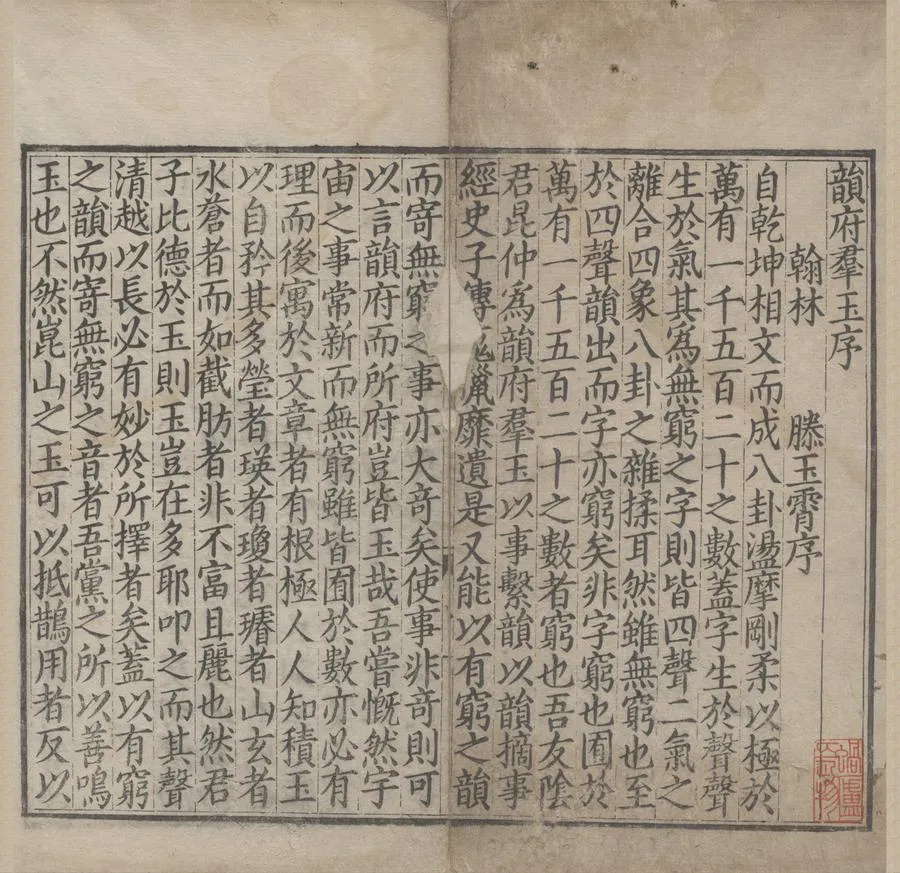 韻府羣玉序
翰林 滕玉霄序
自乾坤相文而成八卦盪摩剛柔以極於
萬有一千五百二十之數蓋字生於聲聲
生於氣其為無窮之字則皆四聲二氣之
離合四象八卦之雜揉耳然雖無窮也至
於四聲韻出而字亦窮矣非字窮也囿於
萬有一千五百二十之數者窮也吾友陰
君昆仲為韻府羣玉以事繫韻以韻摘事
經史子傳獵靡遺是又能以有窮之韻
而寄無窮之事亦大奇矣使事非奇則可
以言韻府而所府豈皆玉哉吾嘗慨然宇
宙之事常新而無窮雖皆囿於數亦必有
理而後寓於文章者有根極人人知積玉
以自矜其多瑩者瑛者瓊者璿者山玄者
水蒼者而如截肪者非不富且麗也然君
子比德於玉則玉豈在多耶叩之而其聲
清越以長必有妙於所擇者矣蓋以有窮
之韻而寄無窮之音者吾黨之所以善鳴
玉也不然崑山之玉可以抵鵲用者反以